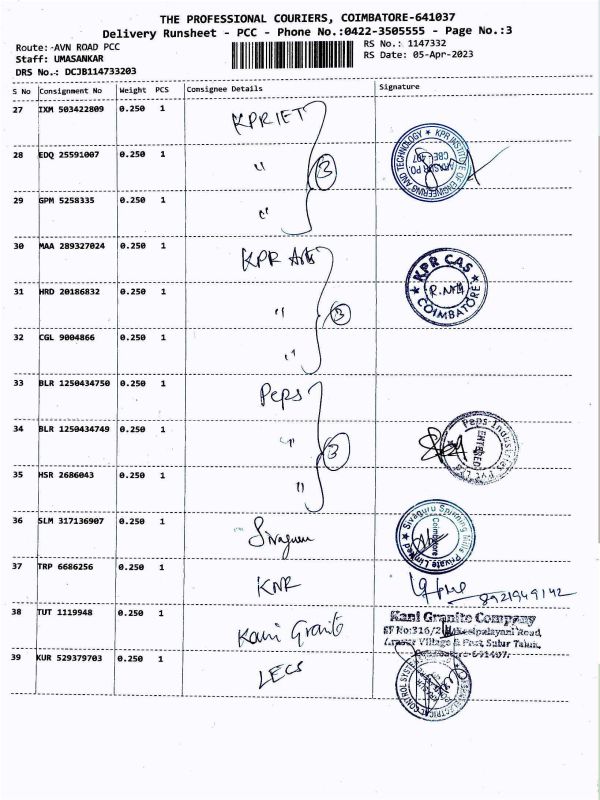 THE PROFESSIONAL COURIERS, COIMBATORE-641037
Delivery Runsheet - PCC - Phone No.:0422-3505555 - Page No.:3
Route: AVN ROAD PCC
RS No.: 1147332
Staff: UMASANKAR
RS Date: 05-Apr-2023
DRS No.: DCJB114733203
S No Consignment No Weight PCS Consignee Details Signature
27 IXM 503422809 0.250 1 KPRIET
28 EDQ 25591007 0.250 1 " 3
KPR INSTITUTE OF ENGINEERING AND TECHNOLOGY
29 GPM 5258335 0.250 1 "
30 MAA 289327024 0.250 1 KPR Arts
KPR CAS
COIMBATORE
31 HRD 20186832 0.250 1 " 3
32 CGL 9004866 0.250 1 "
33 BLR 1250434750 0.250 1 Peps
34 BLR 1250434749 0.250 1 " 3
Peps Industries Pvt Ltd
ENTERED
35 HSR 2686043 0.250 1 "
36 SLM 317136907 0.250 1 Sivaguru
Sivaguru Spinning Mills Private Limited
Coimbatore
37 TRP 6686256 0.250 1 KNR
8921949142
38 TUT 1119948 0.250 1 Kani Granite
Kani Granite Company
SF No:316/2
Road,
Village & Post, Sulur Taluk,
Coimbatore-641407.
39 KUR 529379703 0.250 1 LECS
ELECTRICAL CONTROL SYSTEM